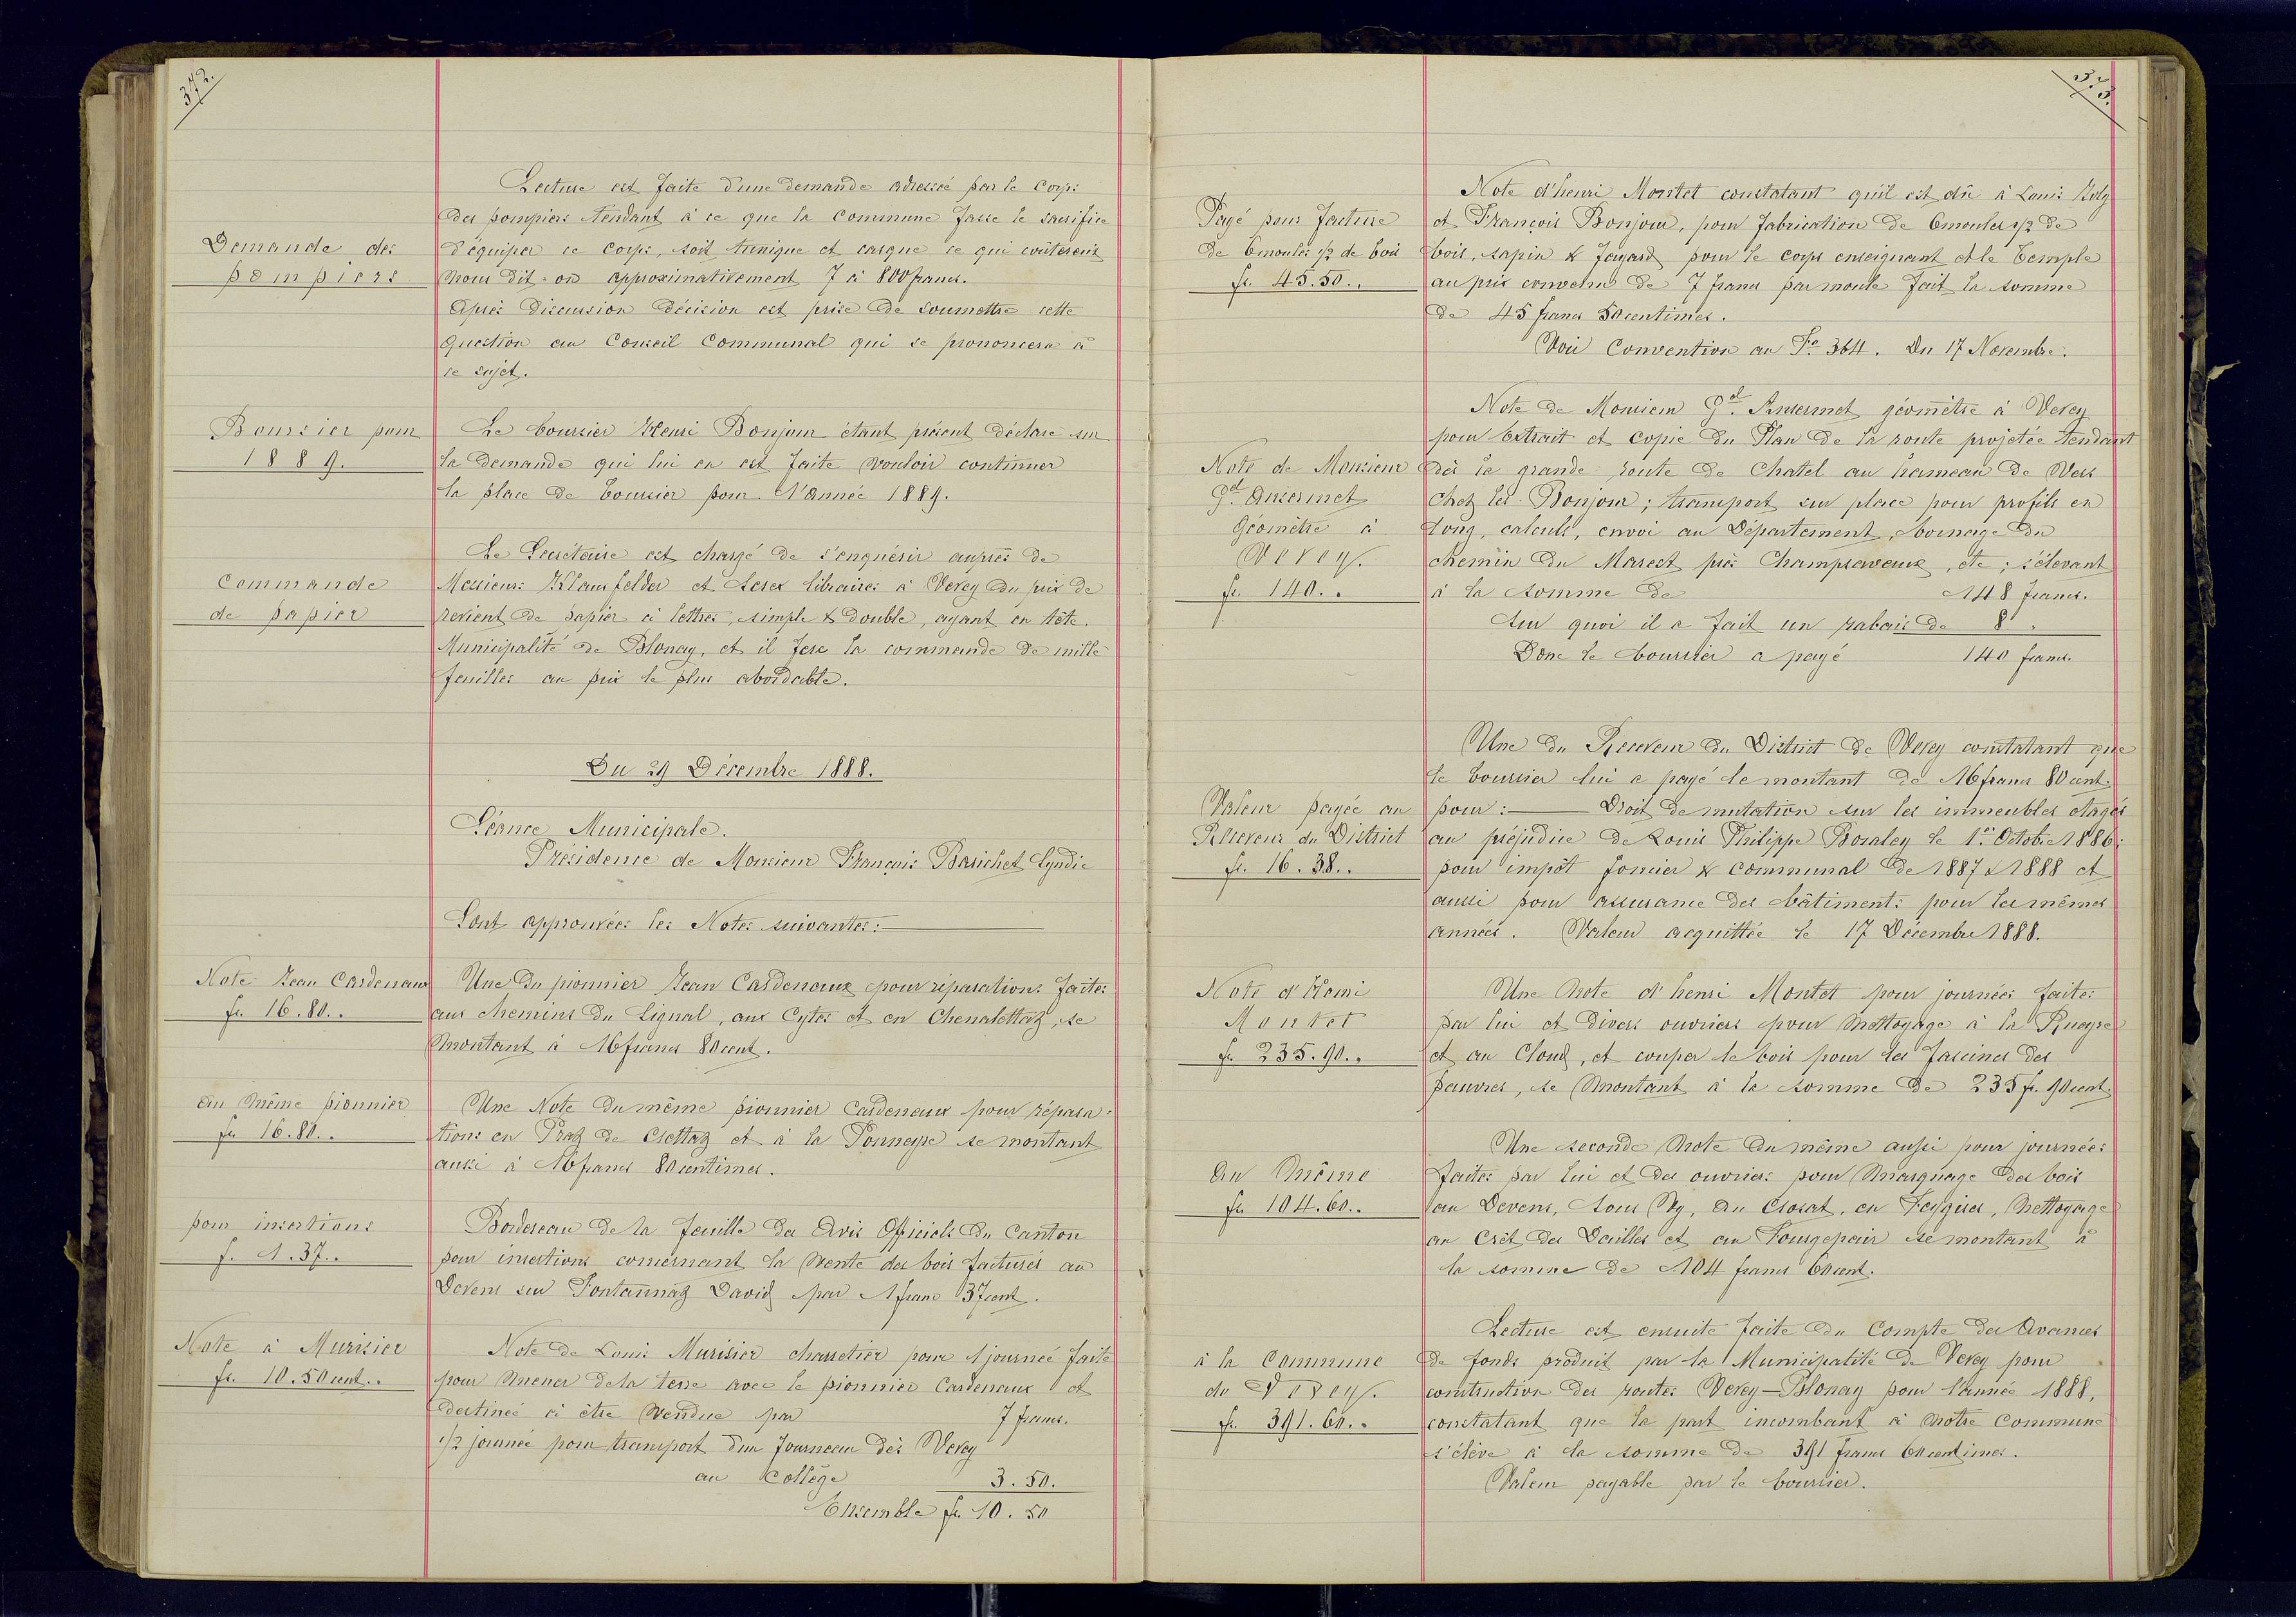 372.
Lecture est faite d'une demande adressée par le Corps
des pompiers tendant à ce que la Commune fasse le sacrifice
Demande des
pompiers
d'équiper ce Corps, soit tunique et casque ce qui coûterait
nous dit-on approximativement 7 à 800 francs.
Après discussion décision est prise de soumettre cette
question au Conseil Communal qui se prononcera à
ce sujet.
Boursier pour
1889.
Le boursier Henri Bonjour étant présent déclare sur
la demande qui lui en est faite vouloir continuer
la place de boursier pour l'Année 1889.
Commande
de papier
Le Secrétaire est chargé de s'enquérir auprès de
Messieurs Klausfelder et Lesex libraires à Vevey du prix de
revient de papier à lettres, simple & double, ayant en tête.
Municipalité de Blonay, et il fera la commande de mille
feuilles au prix le plus abordable.
Du 29 Décembre 1888.
Séance Municipale.
Présidence de Monsieur François Barichet Syndic
Sont approuvées les Notes suivantes:
Note Jean Cardenaux
fr. 16.80..
Une du pionnier Jean Cardenaux pour réparations faites
aux chemins du Signal, aux Cytes et en Chenalettaz, se
montant à 16 francs 80 cent.
Au même pionnier
fr. 16.80..
Une Note du même pionnier Cardenaux pour répara-
tions en Praz de Crettaz et à la Ponneyse se montant
aussi à 16 francs 80 centimes.
pour insertions
f. 1.37..
Bordereau de la feuille des Avis Officiels du Canton
pour insertions concernant la vente des bois facturés au
Devens sur Fontannaz David par 1 franc 37 cent.
Note à Murisier
fr. 10.50 cent..
Note de Louis Murisier charretier pour 1 journée faite
pour mener de la terre avec le pionnier Cardenaux et
destinée à être vendue par 7 francs.
1/2 journée pour transport d'un fourneau dès Vevey
au Collège 3.50.
Ensemble fr. 10.50
373.
Payé pour facture
de 6 moules 1/2 de bois
fr. 45.50..
Note d'henri Montet constatant qu'il est dû à Louis
et François Bonjour, pour fabrication de 6 moules 1/2 de
bois, sapin & fayard pour le corps enseignant et le Temple
au prix convenu de 7 francs par moule fait la somme
de 45 francs 50 centimes.
Voir Convention au Fo. 364. Du 17 Novembre.
Note de Monsieur
Gd. Ansermet
Géomètre à
Vevey.
fr. 140..
Note de Monsieur Gd. Ansermet géomètre à Vevey
pour Extrait et copie du Plan de la route projetée tendant
dès la grande route de Chatel au hameau de Vers
chez les Bonjour; transport sur place pour profils en
long, calculs, envoi au Département, bornage du
chemin du Marest près Champsavaux, etc; s'élevant
à la somme de 148 francs.
Sur quoi il a fait un rabais de 8.
Donc le boursier a payé 140 francs.
Valeur payée au
Receveur du District
fr. 16.38..
Une du Receveur du District de Vevey constatant que
le boursier lui a payé le montant de 16 francs 80 cent.
pour: Droit de mutation sur les immeubles otagés
au préjudice de Louis Philippe Bonaley le 1er Octobre 1886:
pour impôt foncier & communal de 1887 & 1888 et
aussi pour assurance des bâtiments pour les mêmes
années. Valeur acquittée le 17 Décembre 1888.
Note d'Henri
Montet
fr. 235.90..
Une Note d'henri Montet pour journées faites
par lui et divers ouvriers pour nettoyage à la Rueyre
et au Clouz, et couper le bois pour les fascines des
pauvres, se montant à la somme de 235 fr. 90 cent.
Au Même
fr. 104.60..
Une seconde note du même aussi pour journées
faites par lui et des ouvriers pour marquage des bois
au Devens, Sous Ny, au Crosat, en Feygires, nettoyage
au Crêt des Dailles et au Foursepair se montant à
la somme de 104 francs 60 cent.
à la Commune
de Vevey.
fr. 391.60..
Lecture est ensuite faite du Compte des Avances
de fonds produit par la Municipalité de Vevey pour
construction des routes Vevey-Blonay pour l'année 1888,
constatant que la part incombant à notre Commune
s'élève à la somme de 391 francs 60 centimes.
Valeur payable par le boursier.